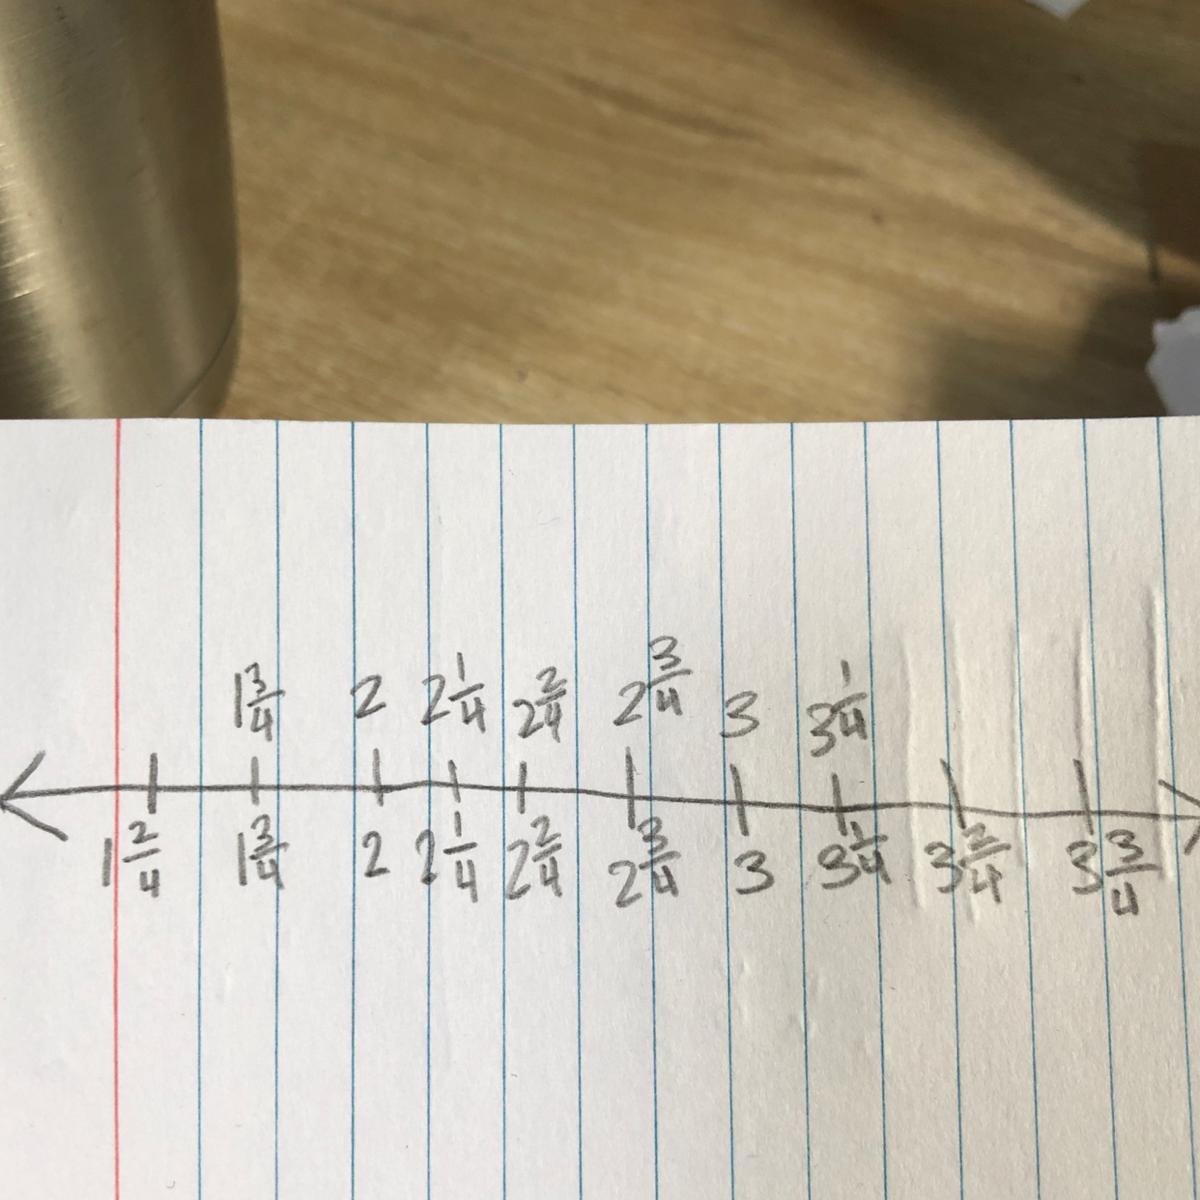 1 3/4 2 2 1/4 2 2/4 2 3/4 3 3 1/4
1 2/4 1 3/4 2 2 1/4 2 2/4 2 3/4 3 3 1/4 3 2/4 3 3/4